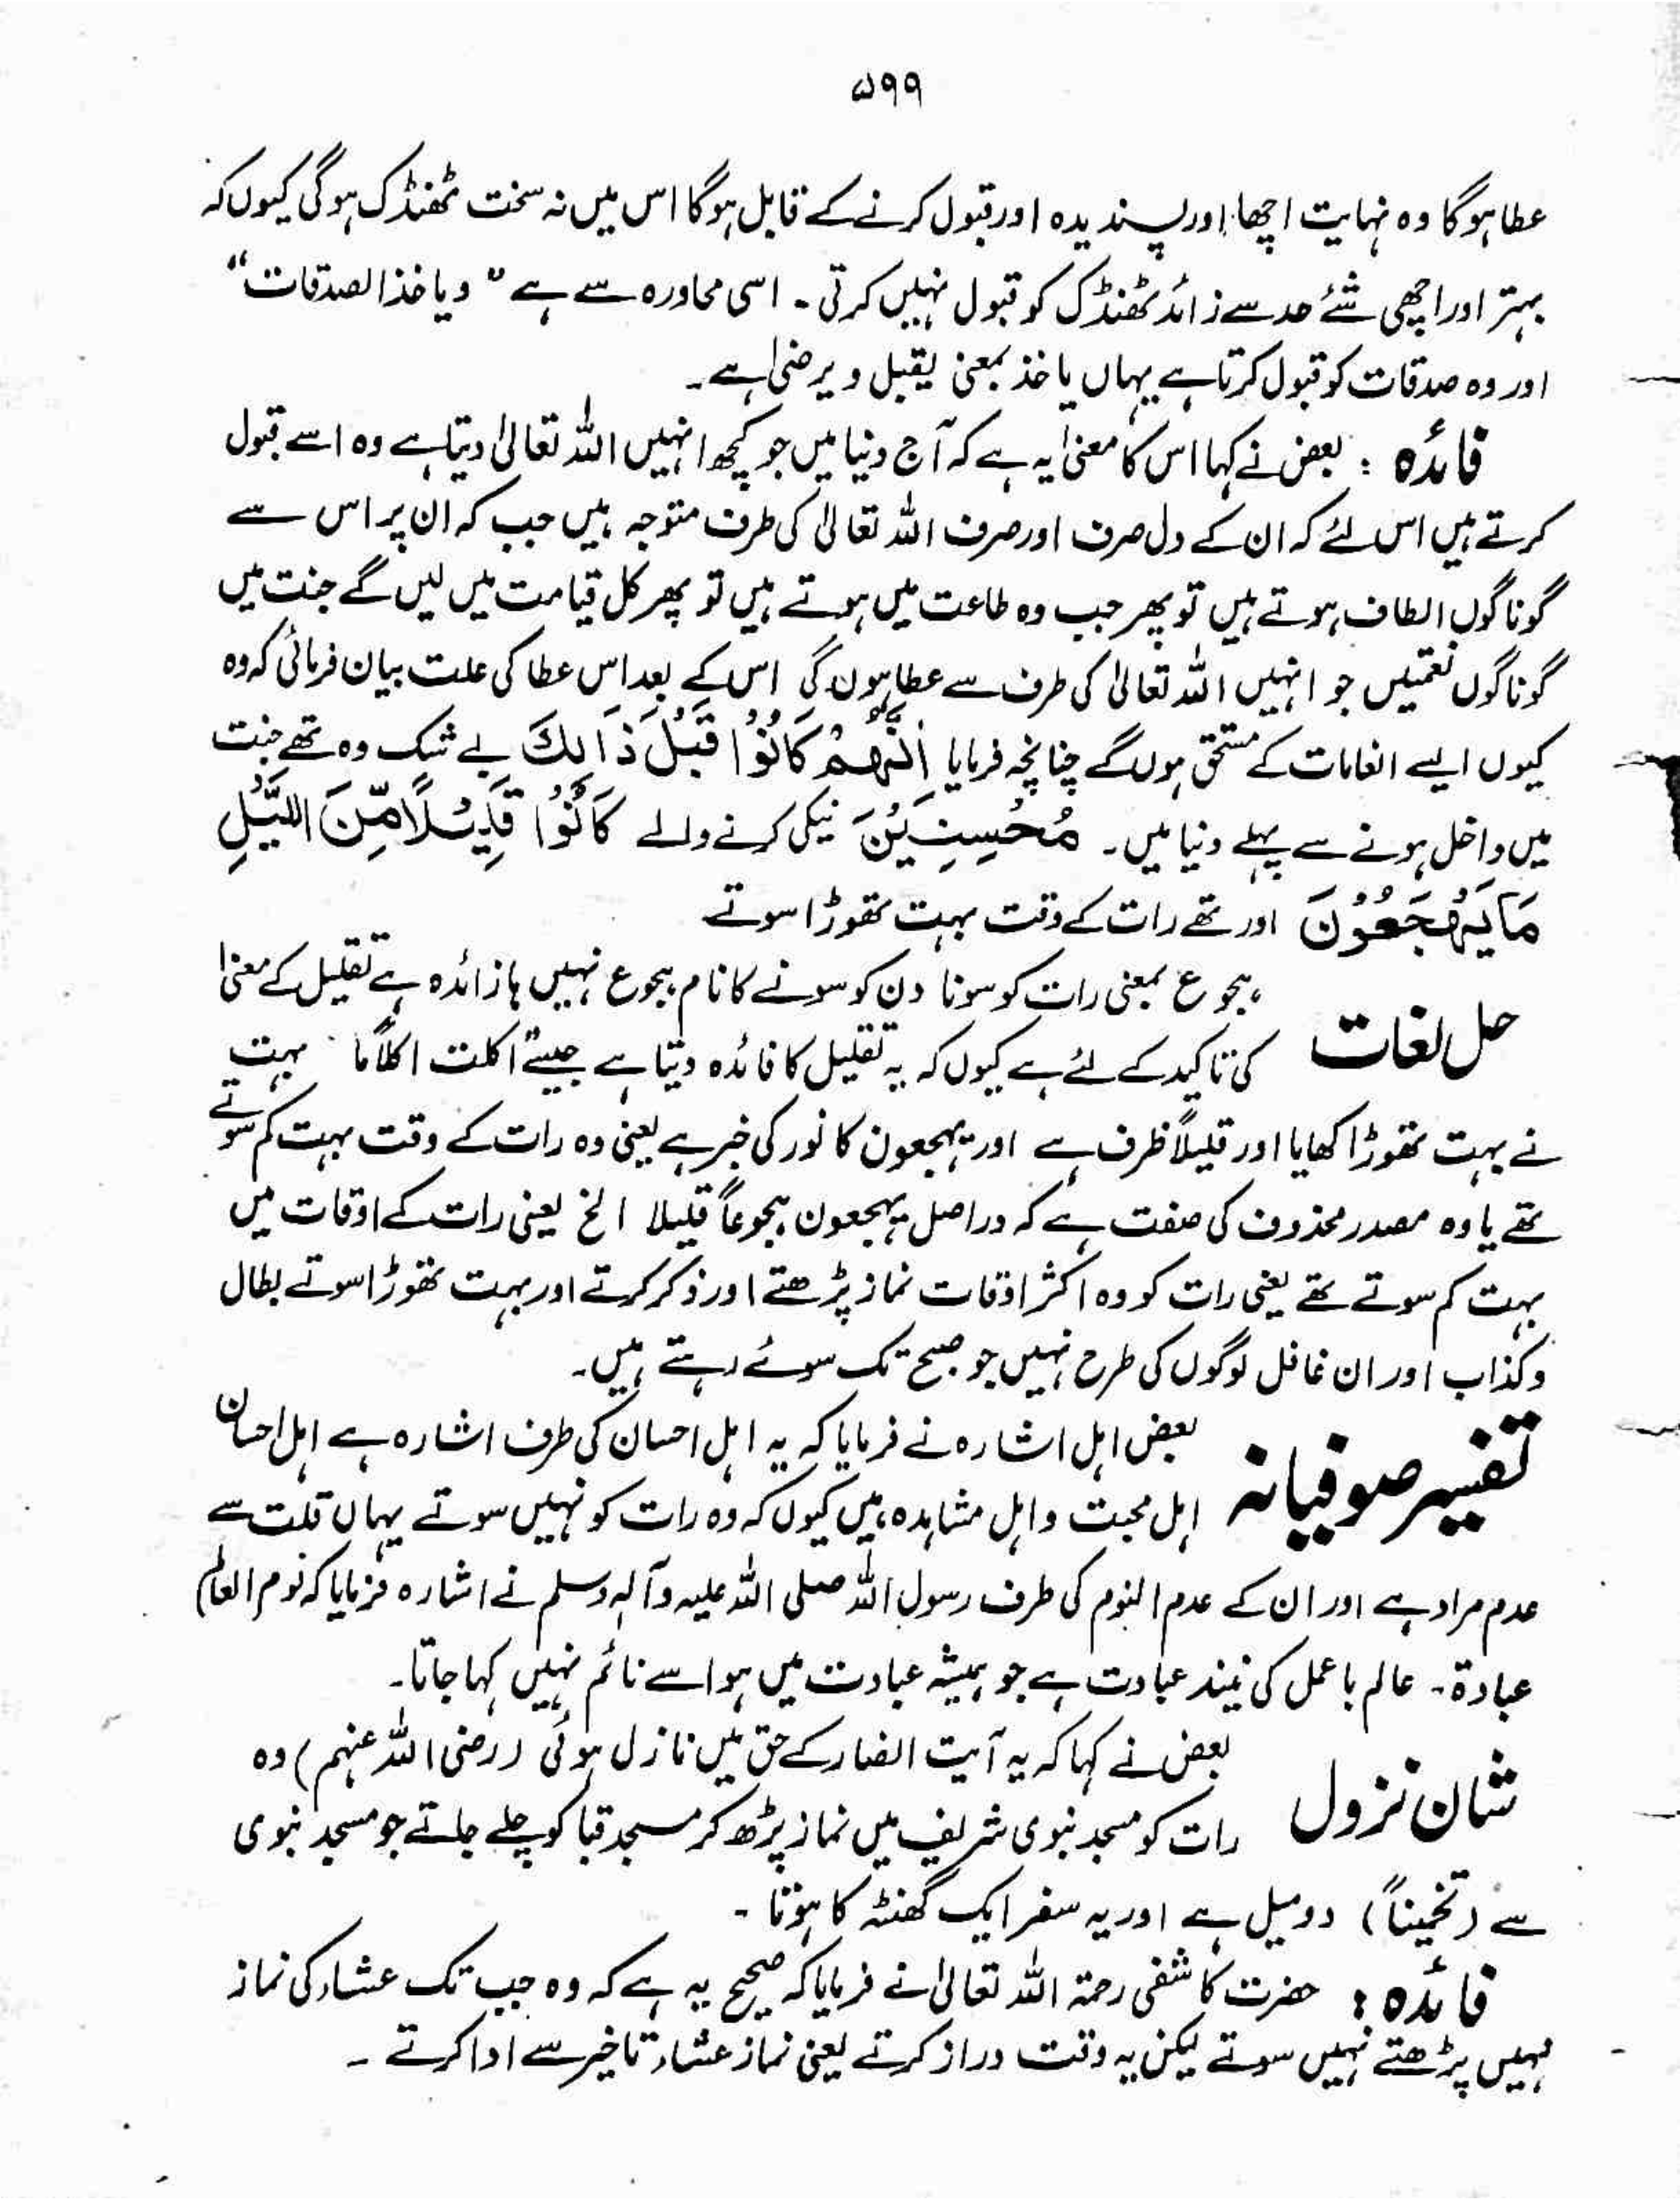 ۵۹۹
عطا ہوگا وہ نہایت اچھا اور پسندیدہ اور قبول کرنے کے قابل ہوگا اس میں نہ سخت ٹھنڈک ہوگی کیوں کہ
بہتر اور اچھی شئے حد سے زائد ٹھنڈک کو قبول نہیں کرتی ۔ اسی محاورہ سے ہے " ویاخذ الصدقات "
اور وہ صدقات کو قبول کرتا ہے یہاں یاخذ بمعنی یقبل و یرضیٰ ہے ۔
فائدہ : بعض نے کہا اس کا معنیٰ یہ ہے کہ آج دنیا میں جو کچھ انہیں اللہ تعالیٰ دیتا ہے وہ اسے قبول
کرتے ہیں اس لئے کہ ان کے دل صرف اور صرف اللہ تعالیٰ کی طرف متوجہ ہیں جب کہ ان پر اس سے
گوناگوں الطاف ہوتے ہیں تو پھر جب وہ طاعت میں ہوتے ہیں تو پھر کل قیامت میں لیں گے جنت میں
گوناگوں نعمتیں جو انہیں اللہ تعالیٰ کی طرف سے عطا ہوں گی اس کے بعد اس عطا کی علت بیان فرمائی کہ وہ
کیوں ایسے انعامات کے مستحق ہوں گے چنانچہ فرمایا اِنَّهُمْ كَانُوْا قَبْلَ ذَالِكَ بے شک وہ تھے جنت
میں داخل ہونے سے پہلے دنیا میں ۔ مُحْسِنِیْنَ نیکی کرنے والے كَانُوْا قَلِيْلًا مِّنَ اللَّیْلِ
مَا يَهْجَعُوْنَ اور تھے رات کے وقت بہت تھوڑا سوتے
حل لغات ہجوع بمعنی رات کو سونا دن کو سونے کا نام ہجوع نہیں ما زائدہ ہے تقلیل کے معنیٰ
کی تاکید کے لئے ہے کیوں کہ یہ تقلیل کا فائدہ دیتا ہے جیسے اکلت اکلاً ما بہت
نے بہت تھوڑا کھایا اور قلیلاً ظرف ہے اور یہجعون کانوا کی خبر ہے یعنی وہ رات کے وقت بہت کم سوتے
تھے یا وہ مصدر محذوف کی صفت ہے کہ دراصل یہجعون ہجوعاً قلیلا الخ یعنی رات کے اوقات میں
بہت کم سوتے تھے یعنی رات کو وہ اکثر اوقات نماز پڑھتے اور ذکر کرتے اور بہت تھوڑا سوتے بطال
وکذاب اور ان غافل لوگوں کی طرح نہیں جو صبح تک سوئے رہتے ہیں ۔
تفسیر صوفیانہ بعض اہل اشارہ نے فرمایا کہ یہ اہل احسان کی طرف اشارہ ہے اہل احسان
اہل محبت و اہل مشاہدہ ہیں کیوں کہ وہ رات کو نہیں سوتے یہاں قلت سے
عدم مراد ہے اور ان کے عدم النوم کی طرف رسول اللہ صلی اللہ علیہ وآلہ وسلم نے اشارہ فرمایا کہ نوم العالم
عبادۃ ۔ عالم باعمل کی نیند عبادت ہے جو ہمیشہ عبادت میں ہو اسے نائم نہیں کہا جاتا ۔
شان نزول بعض نے کہا کہ یہ آیت انصار کے حق میں نازل ہوئی (رضی اللہ عنہم) وہ
رات کو مسجد نبوی شریف میں نماز پڑھ کر مسجد قبا کو چلے جاتے جو مسجد نبوی
سے (تخمیناً) دو میل ہے اور یہ سفر ایک گھنٹہ کا ہوتا ۔
فائدہ : حضرت کاشفی رحمۃ اللہ تعالیٰ نے فرمایا کہ صحیح یہ ہے کہ وہ جب تک عشاء کی نماز
نہیں پڑھتے نہیں سوتے لیکن یہ وقت دراز کرتے یعنی نماز عشاء تاخیر سے ادا کرتے ۔